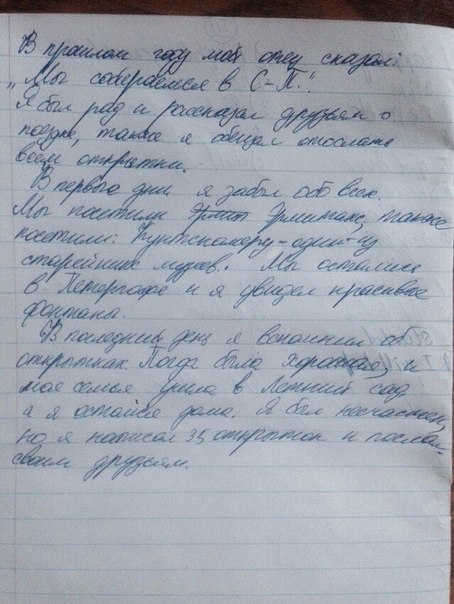 В прошлом году мой отец сказал:
„Мы собераемся в С-П."
Я был рад и рассказал друзьям о
поздке, также я обещал отослать
всем открытки.
В первые дни я забыл обо всех.
Мы посетили Эрмит Эрмитаж, также
посетили: Кунтскамеру-один-из
старейших музеев. Мы остались
в Петергофе и я увидел красивые
фонтаны.
В последний день я вспомнил об
открытках. Погда была хорошая, и
моя семья ушла в Летний сад
а я остался дома. Я был несчастен,
но я написал 35 открыток и послал
своим друзьям.